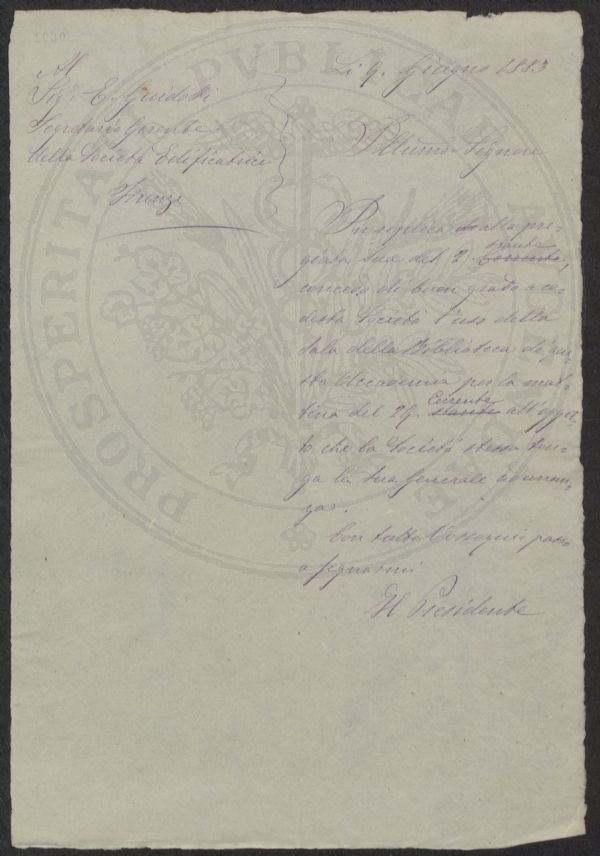 1030
Li 9. Giugno 1883
Al
Sigr. E. Guidotti
Segretario Gerente
della Società Edificatrice
Firenze
Illumo. Signore
In replica alla pre-
giata sua del 2 stante corrente,
concedo di buon grado a co-
desta Società l'uso della
Sala della Biblioteca di que-
sta Accademia per la mat-
tina del 29. Corrente stante all'ogget-
to che la Società stessa ten-
ga la sua generale adunan-
za.
Con tutto l'ossequio passo
a segnarmi
Il Presidente
PROSPERITA PVBLICAE